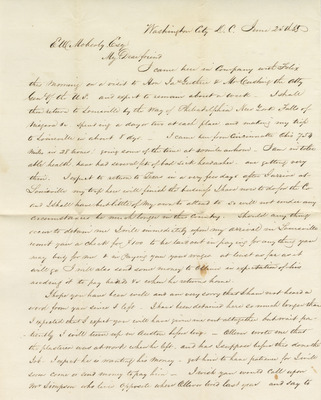 Washington City D.C. June 25th 53
E. W. Moberly Esq
My Dear friend
I came here in Company with Felix
this Morning on a visit to Hon Jas Guthrie & Mr Cushing the Atty
Genl of the U.S. and expect to remain about a week. I shall
then return to Louisville by the Way of Philadelphia New York Falls of
Niagara & spending a day or two at each place and making my trip
to Louisville in about 8 days — I came here from Cincinnati this 754
miles in 28 hours going some of the time at 50 miles an hour. I am in toler
able health now but had several fits of bad sick headaches, am getting over
them. I expect to return to Texas in a very few days after I arrive at
Louisville my trip here will finish the business I have now to do for the Co
and I shall have but little of My own to attend to so will not under any
circumstances be much longer in this Country. Should any thing
occur to detain me I will immediately upon my arrival in Louisville
remit you a check for $100 to be laid out in paying for any thing you
may buy for me & in Paying you your wages at least as far as it
will go I will also send some money to Allen in expectation of his
needing it to pay hands &c when he returns home
I hope you have been well and am very sorry that I have not heard a
word from you since I left. I have been detained here so much longer than
I expected that I expect you will have given me out altogether but most pro
bably I will turn up in Austin before long — Allen wrote me that
the plasterer was at work when he left, and has I suppose before this done the
Job. I expect he is wanting his Money. get him to have patience for I will
soon come or send money to pay him — I wish you would Call upon
Mr Simpson who lives opposite where Allen lived last year and say to